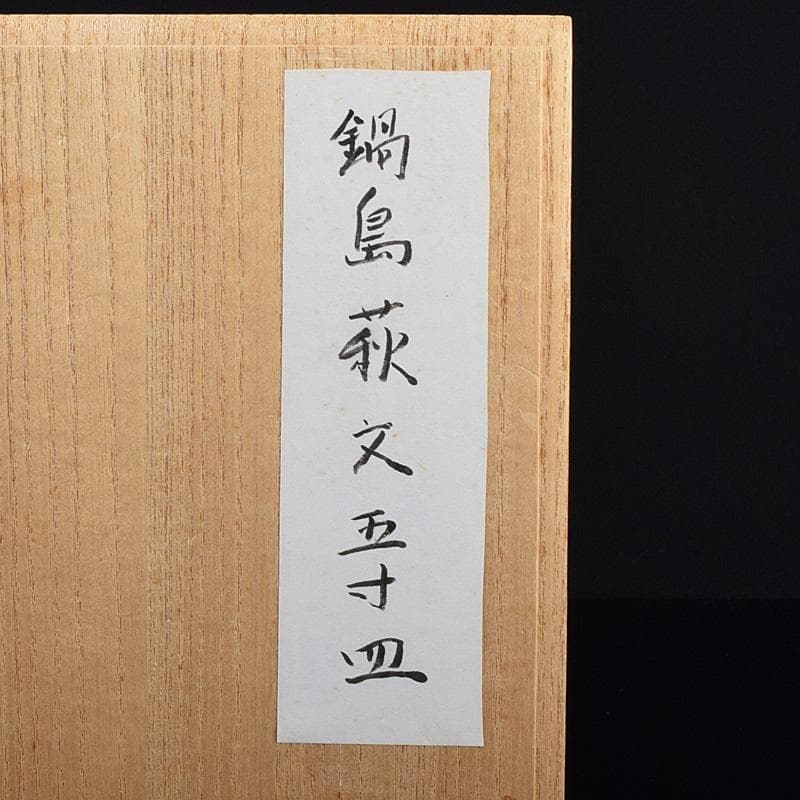 鍋島萩文五寸皿